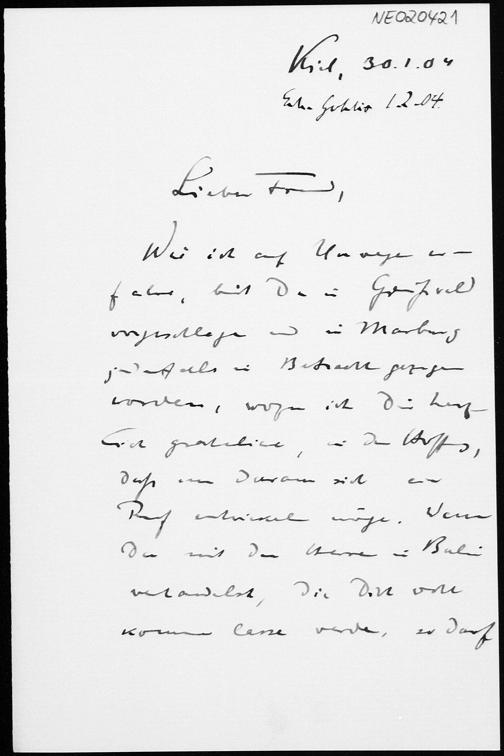 NEO20421
Kiel, 30.1.04
1.2.04.
Lieber Freund,
Wie ich auf Umwegen er-
fahre, bist Du in Greifswald
vorgeschlagen und in Marburg
jedenfalls in Betracht gezogen
worden, wozu ich Dir herz-
lich gratuliere, in der Hoffng,
daß nun daraus sich ein
Ruf entwickeln möge. Wenn
Du mit den Herren in Berlin
verhandelst, die Dich wohl
kommen lassen werden, so darf